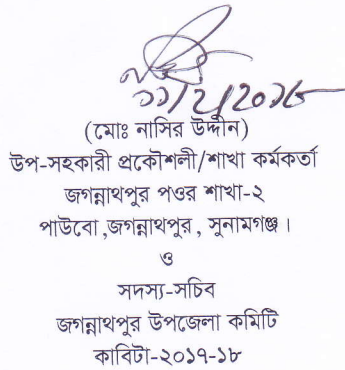 ১১/২/২০১৮
(মোঃ নাসির উদ্দীন)
উপ-সহকারী প্রকৌশলী/শাখা কর্মকর্তা
জগন্নাথপুর পওর শাখা-২
পাউবো,জগন্নাথপুর, সুনামগঞ্জ।
ও
সদস্য-সচিব
জগন্নাথপুর উপজেলা কমিটি
কাবিটা-২০১৭-১৮